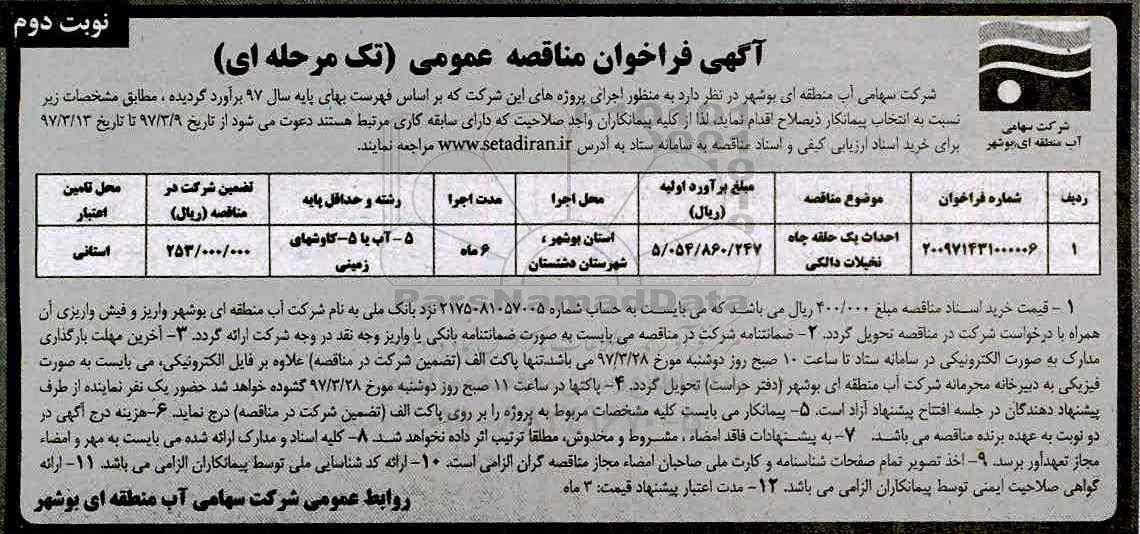 نوبت دوم
آگهی فراخوان مناقصه عمومی (تک مرحله ای)
شرکت سهامی
آب منطقه ای بوشهر
شرکت سهامی آب منطقه ای بوشهر در نظر دارد به منظور اجرای پروژه های این شرکت که بر اساس فهرست بهای پایه سال ۹۷ برآورد گردیده ، مطابق مشخصات زیر
نسبت به انتخاب پیمانکار ذیصلاح اقدام نماید، لذا از کلیه پیمانکاران واجد صلاحیت که دارای سابقه کاری مرتبط هستند دعوت می شود از تاریخ ۹۷/۳/۹ تا تاریخ ۹۷/۳/۱۳
برای خرید اسناد ارزیابی کیفی و اسناد مناقصه به سامانه ستاد به آدرس www.setadiran.ir مراجعه نمایند.
ردیف شماره فراخوان موضوع مناقصه مبلغ برآورد اولیه (ریال) محل اجرا مدت اجرا رشته و حداقل پایه تضمین شرکت در مناقصه (ریال) محل تامین اعتبار
۱ ۲۰۰۹۷۱۴۳۱۰۰۰۰۰۶ احداث یک حلقه چاه نخیلات دالکی ۵/۰۵۴/۸۶۰/۲۴۷ استان بوشهر ، شهرستان دشتستان ۶ ماه ۵-آب یا ۵-کاوشهای زمینی ۲۵۳/۰۰۰/۰۰۰ استانی
۱ - قیمت خرید اسناد مناقصه مبلغ ۴۰۰/۰۰۰ ریال می باشد که می بایست به حساب شماره ۲۱۷۵۰۸۱۰۵۷۰۰۵ نزد بانک ملی به نام شرکت آب منطقه ای بوشهر واریز و فیش واریزی آن
همراه با درخواست شرکت در مناقصه تحویل گردد. ۲- ضمانتنامه شرکت در مناقصه می بایست به صورت ضمانتنامه بانکی یا واریز وجه نقد در وجه شرکت ارائه گردد. ۳- آخرین مهلت بارگذاری
مدارک به صورت الکترونیکی در سامانه ستاد تا ساعت ۱۰ صبح روز دوشنبه مورخ ۹۷/۳/۲۸ می باشد،تنها پاکت الف (تضمین شرکت در مناقصه) علاوه بر فایل الکترونیکی، می بایست به صورت
فیزیکی به دبیرخانه محرمانه شرکت آب منطقه ای بوشهر (دفتر حراست) تحویل گردد. ۴- پاکتها در ساعت ۱۱ صبح روز دوشنبه مورخ ۹۷/۳/۲۸ گشوده خواهد شد حضور یک نفر نماینده از طرف
پیشنهاد دهندگان در جلسه افتتاح پیشنهاد آزاد است. ۵- پیمانکار می بایست کلیه مشخصات مربوط به پروژه را بر روی پاکت الف (تضمین شرکت در مناقصه) درج نماید. ۶-هزینه درج آگهی در
دو نوبت به عهده برنده مناقصه می باشد. ۷- به پیشنهادات فاقد امضاء ، مشروط و مخدوش، مطلقا ترتیب اثر داده نخواهد شد. ۸- کلیه اسناد و مدارک ارائه شده می بایست به مهر و امضاء
مجاز تعهدآور برسد. ۹- اخذ تصویر تمام صفحات شناسنامه و کارت ملی صاحبان امضاء مجاز مناقصه گران الزامی است. ۱۰- ارائه کد شناسایی ملی توسط پیمانکاران الزامی می باشد. ۱۱- ارائه
گواهی صلاحیت ایمنی توسط پیمانکاران الزامی می باشد. ۱۲- مدت اعتبار پیشنهاد قیمت: ۳ ماه
روابط عمومی شرکت سهامی آب منطقه ای بوشهر
ParsNamadData